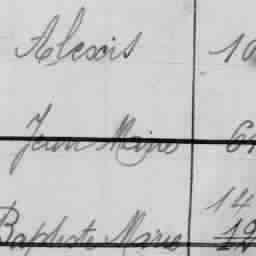 Alexis 10
Jean Marie 61
14
Baptiste Marie 12